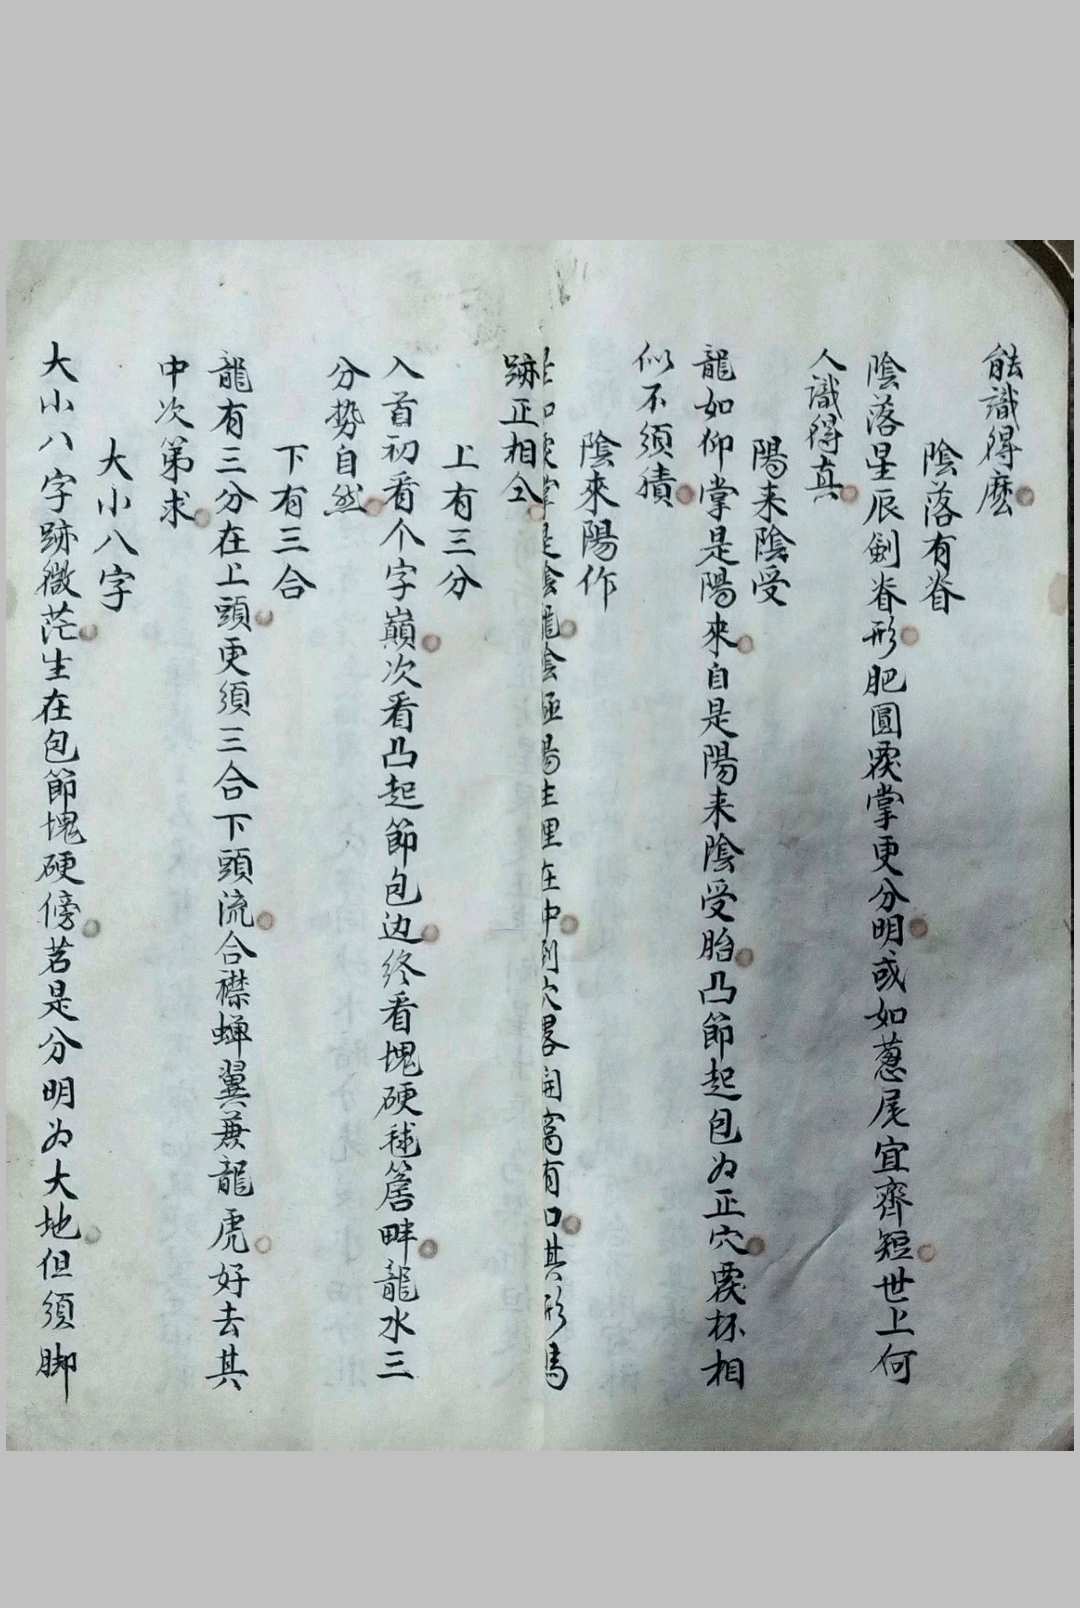 能識得麽
陰落有脊
陰落星辰劍脊形肥圓覆掌更分明或如蔥尾宜齊短世上何
人識得真
陽来陰受
龍如仰掌是陽來自是陽来陰受胎凸節起包为正穴覆杯相
似不須
陰來陽作
掌是陰龍陰極陽生理在中到穴畧開窩有口其形馬
跡正相仝
上有三分
入首初看个字巔次看凸起節包边終看塊硬毬簷畔龍水三
分势自然
下有三合
龍有三分在上頭更須三合下頭流合襟蟬翼蕪龍虎好去其
中次第求
大小八字
大小八字跡微茫生在包節塊硬傍若是分明为大地但須脚